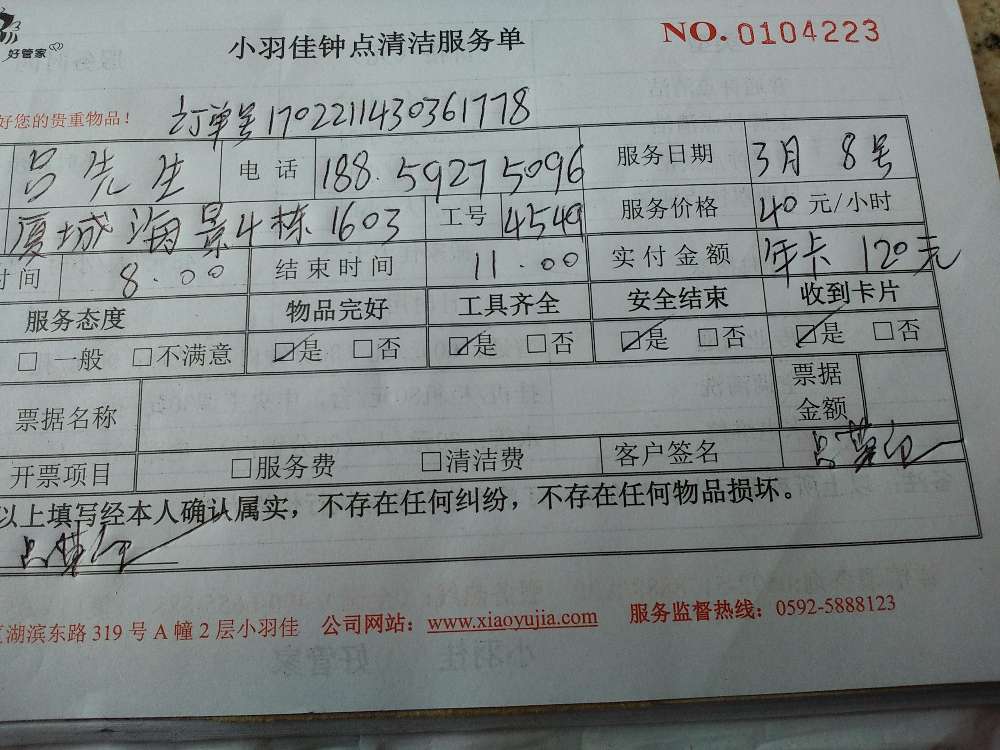 好管家
小羽佳钟点清洁服务单 NO. 0104223
好您的贵重物品! 订单号1702211430361778
吕先生 电话 188.59275096 服务日期 3月8号
厦城海景4栋1603 工号 4549 服务价格 40元/小时
时间 8.00 结束时间 11.00 实付金额 年卡 120元
服务态度 物品完好 工具齐全 安全结束 收到卡片
□一般 □不满意 ☑是 □否 ☑是 □否 ☑是 □否 ☑是 □否
票据名称 票据金额
开票项目 □服务费 □清洁费 客户签名
以上填写经本人确认属实，不存在任何纠纷，不存在任何物品损坏。
湖滨东路319号A幢2层小羽佳 公司网站：www.xiaoyujia.com 服务监督热线：0592-5888123